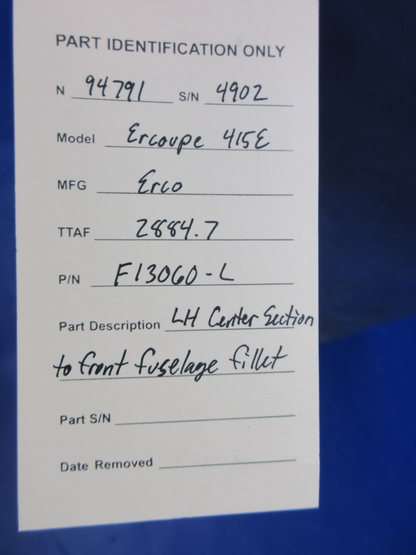 PART IDENTIFICATION ONLY
N 94791 S/N 4902
Model Ercoupe 415E
MFG Erco
TTAF 2884.7
P/N F13060-L
Part Description LH Center Section
to front fuselage fillet
Part S/N
Date Removed